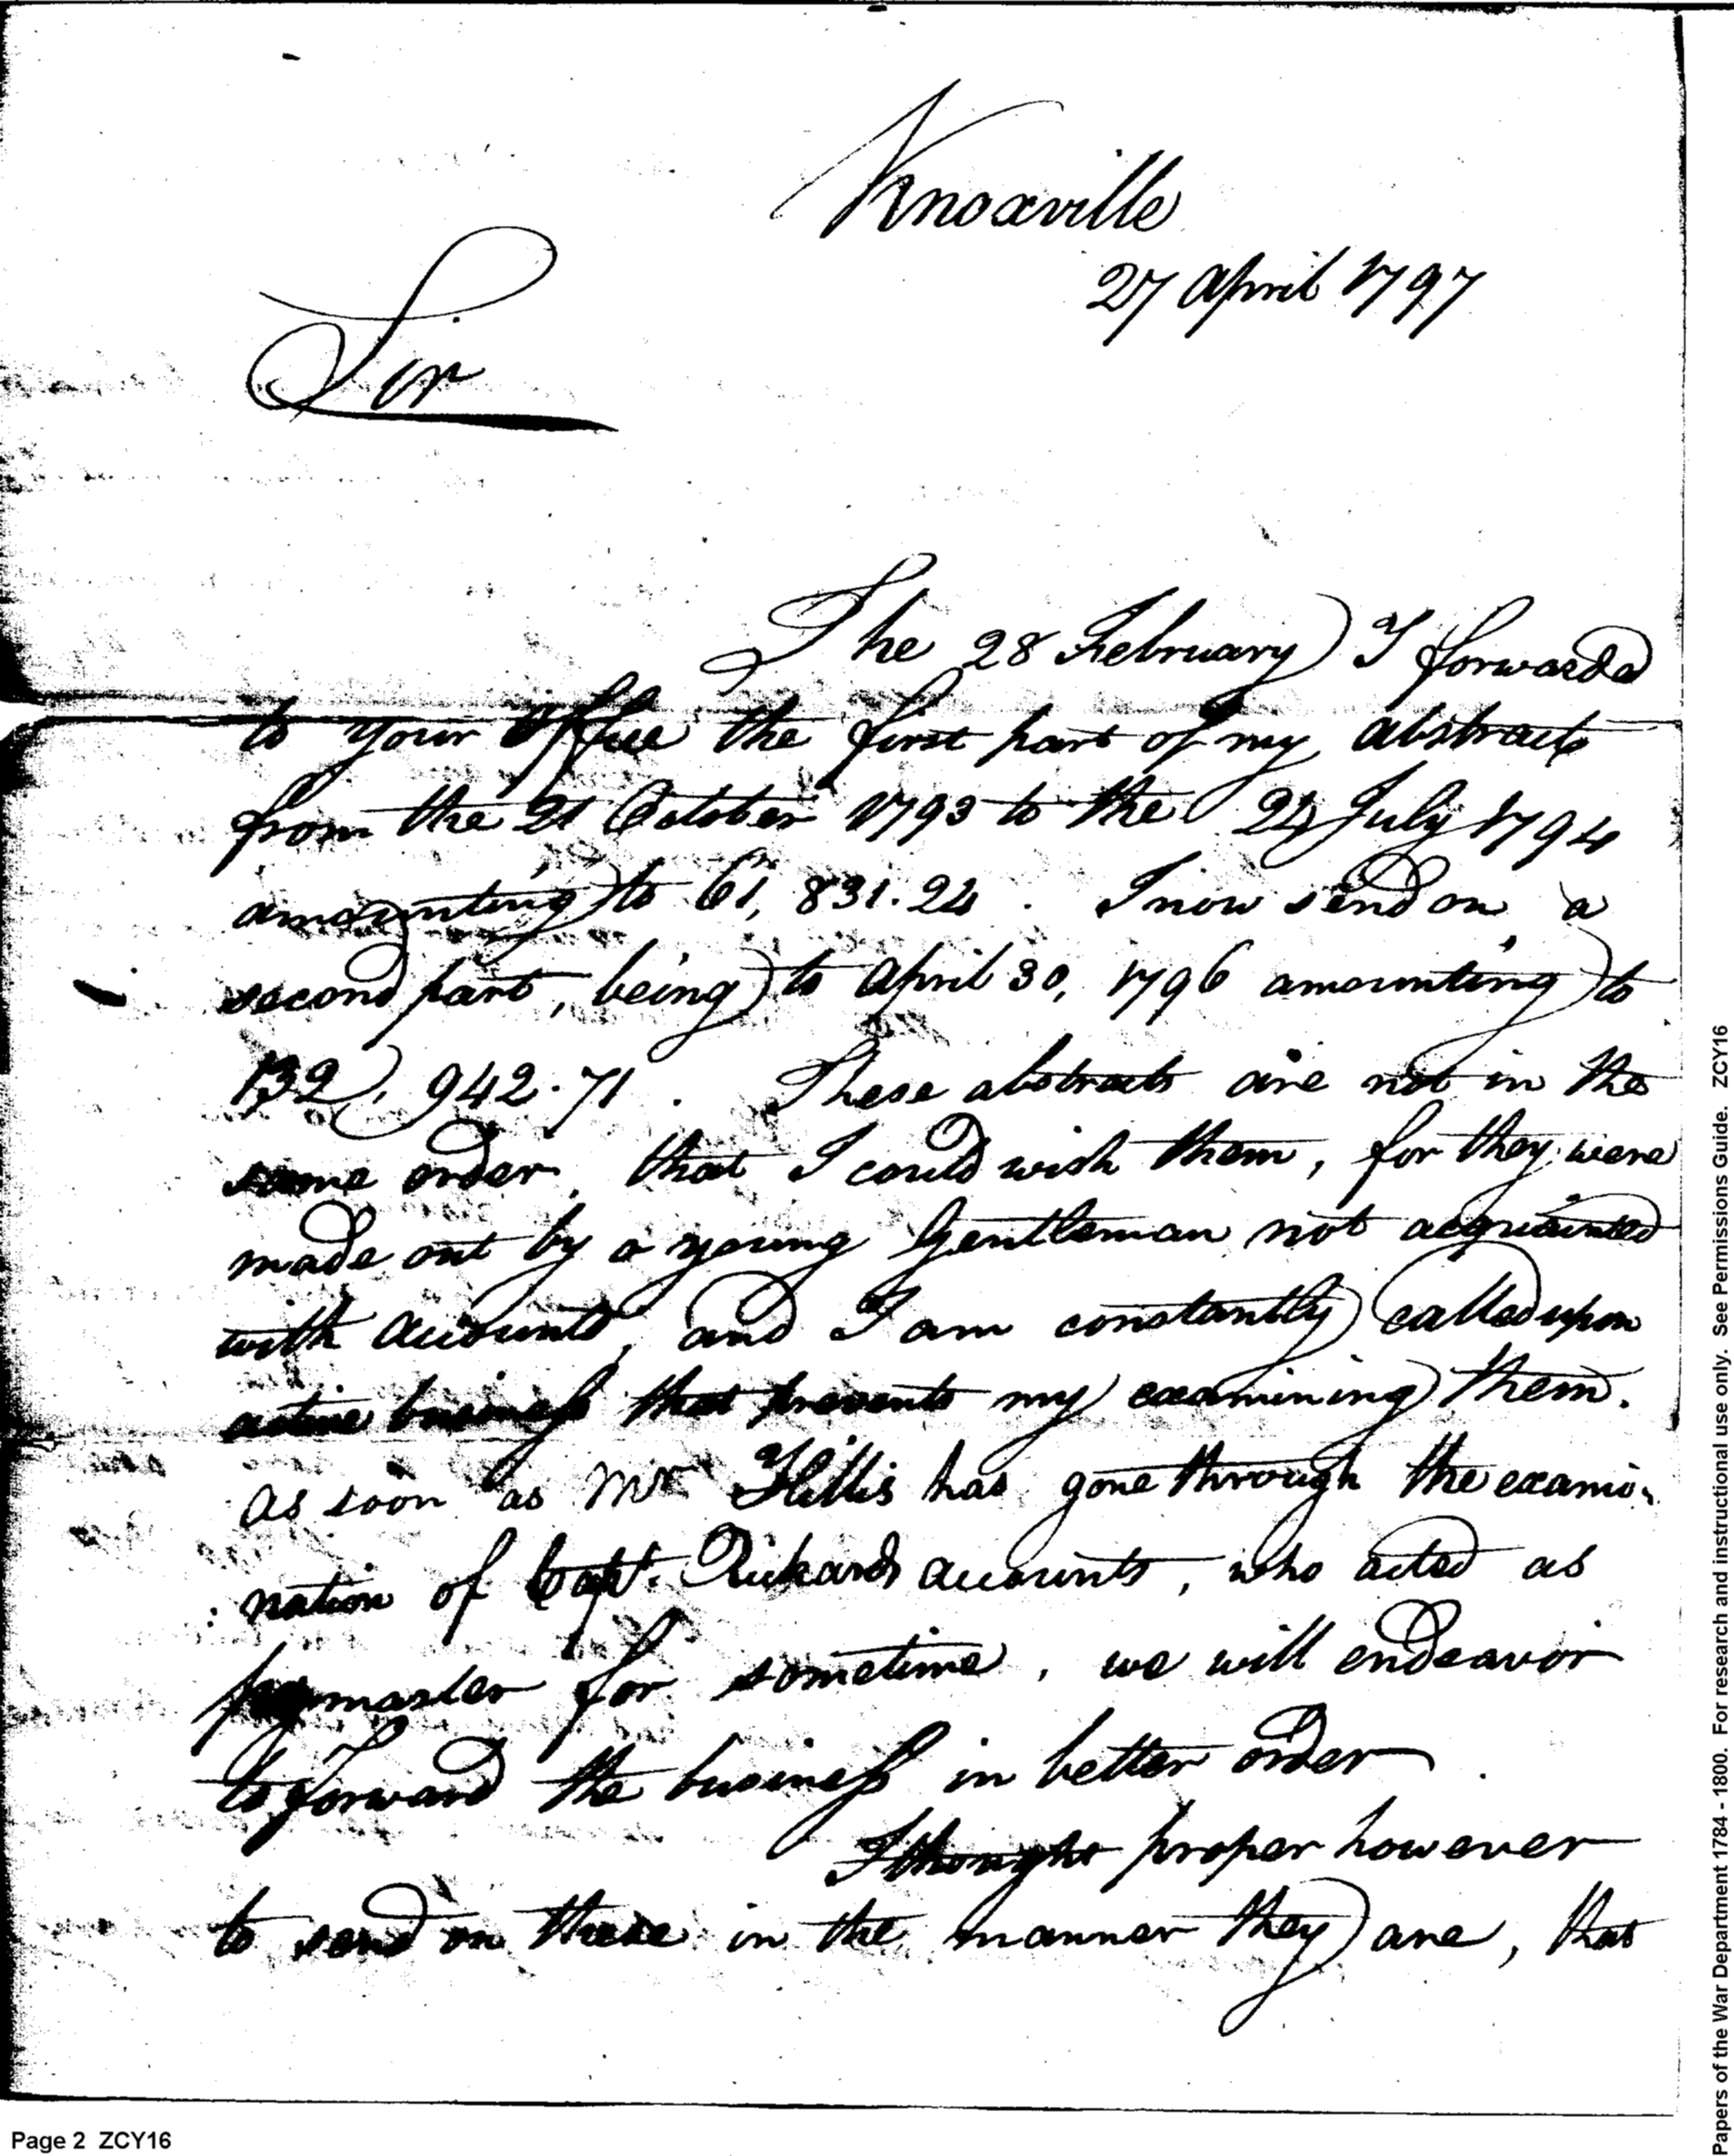 Knoxville
27 April 1797
Sir
The 28 February I forwarded
to your Office the first part of my abstracts
from the 21 October 1793 to the 24 July 1794
amounting to 61,831.24. I now send on a
second part, being to April 30, 1796 amounting to
132,942.71. These abstracts are not in the
same order that I could wish them, for they were
made out by a young Gentleman not acquainted
with accounts, and I am constantly called upon
active business that prevents my examining them.
As soon as Mr Hillis has gone through the exami-
:nation of Capt. Rickards accounts, who acted as
paymaster for sometime, we will endeavor
to forward the business in better order.
I thought proper however
to send on these in the manner they are, that
Page 2 ZCY16
Papers of the War Department 1784 - 1800. For research and instructional use only. See Permissions Guide. ZCY16